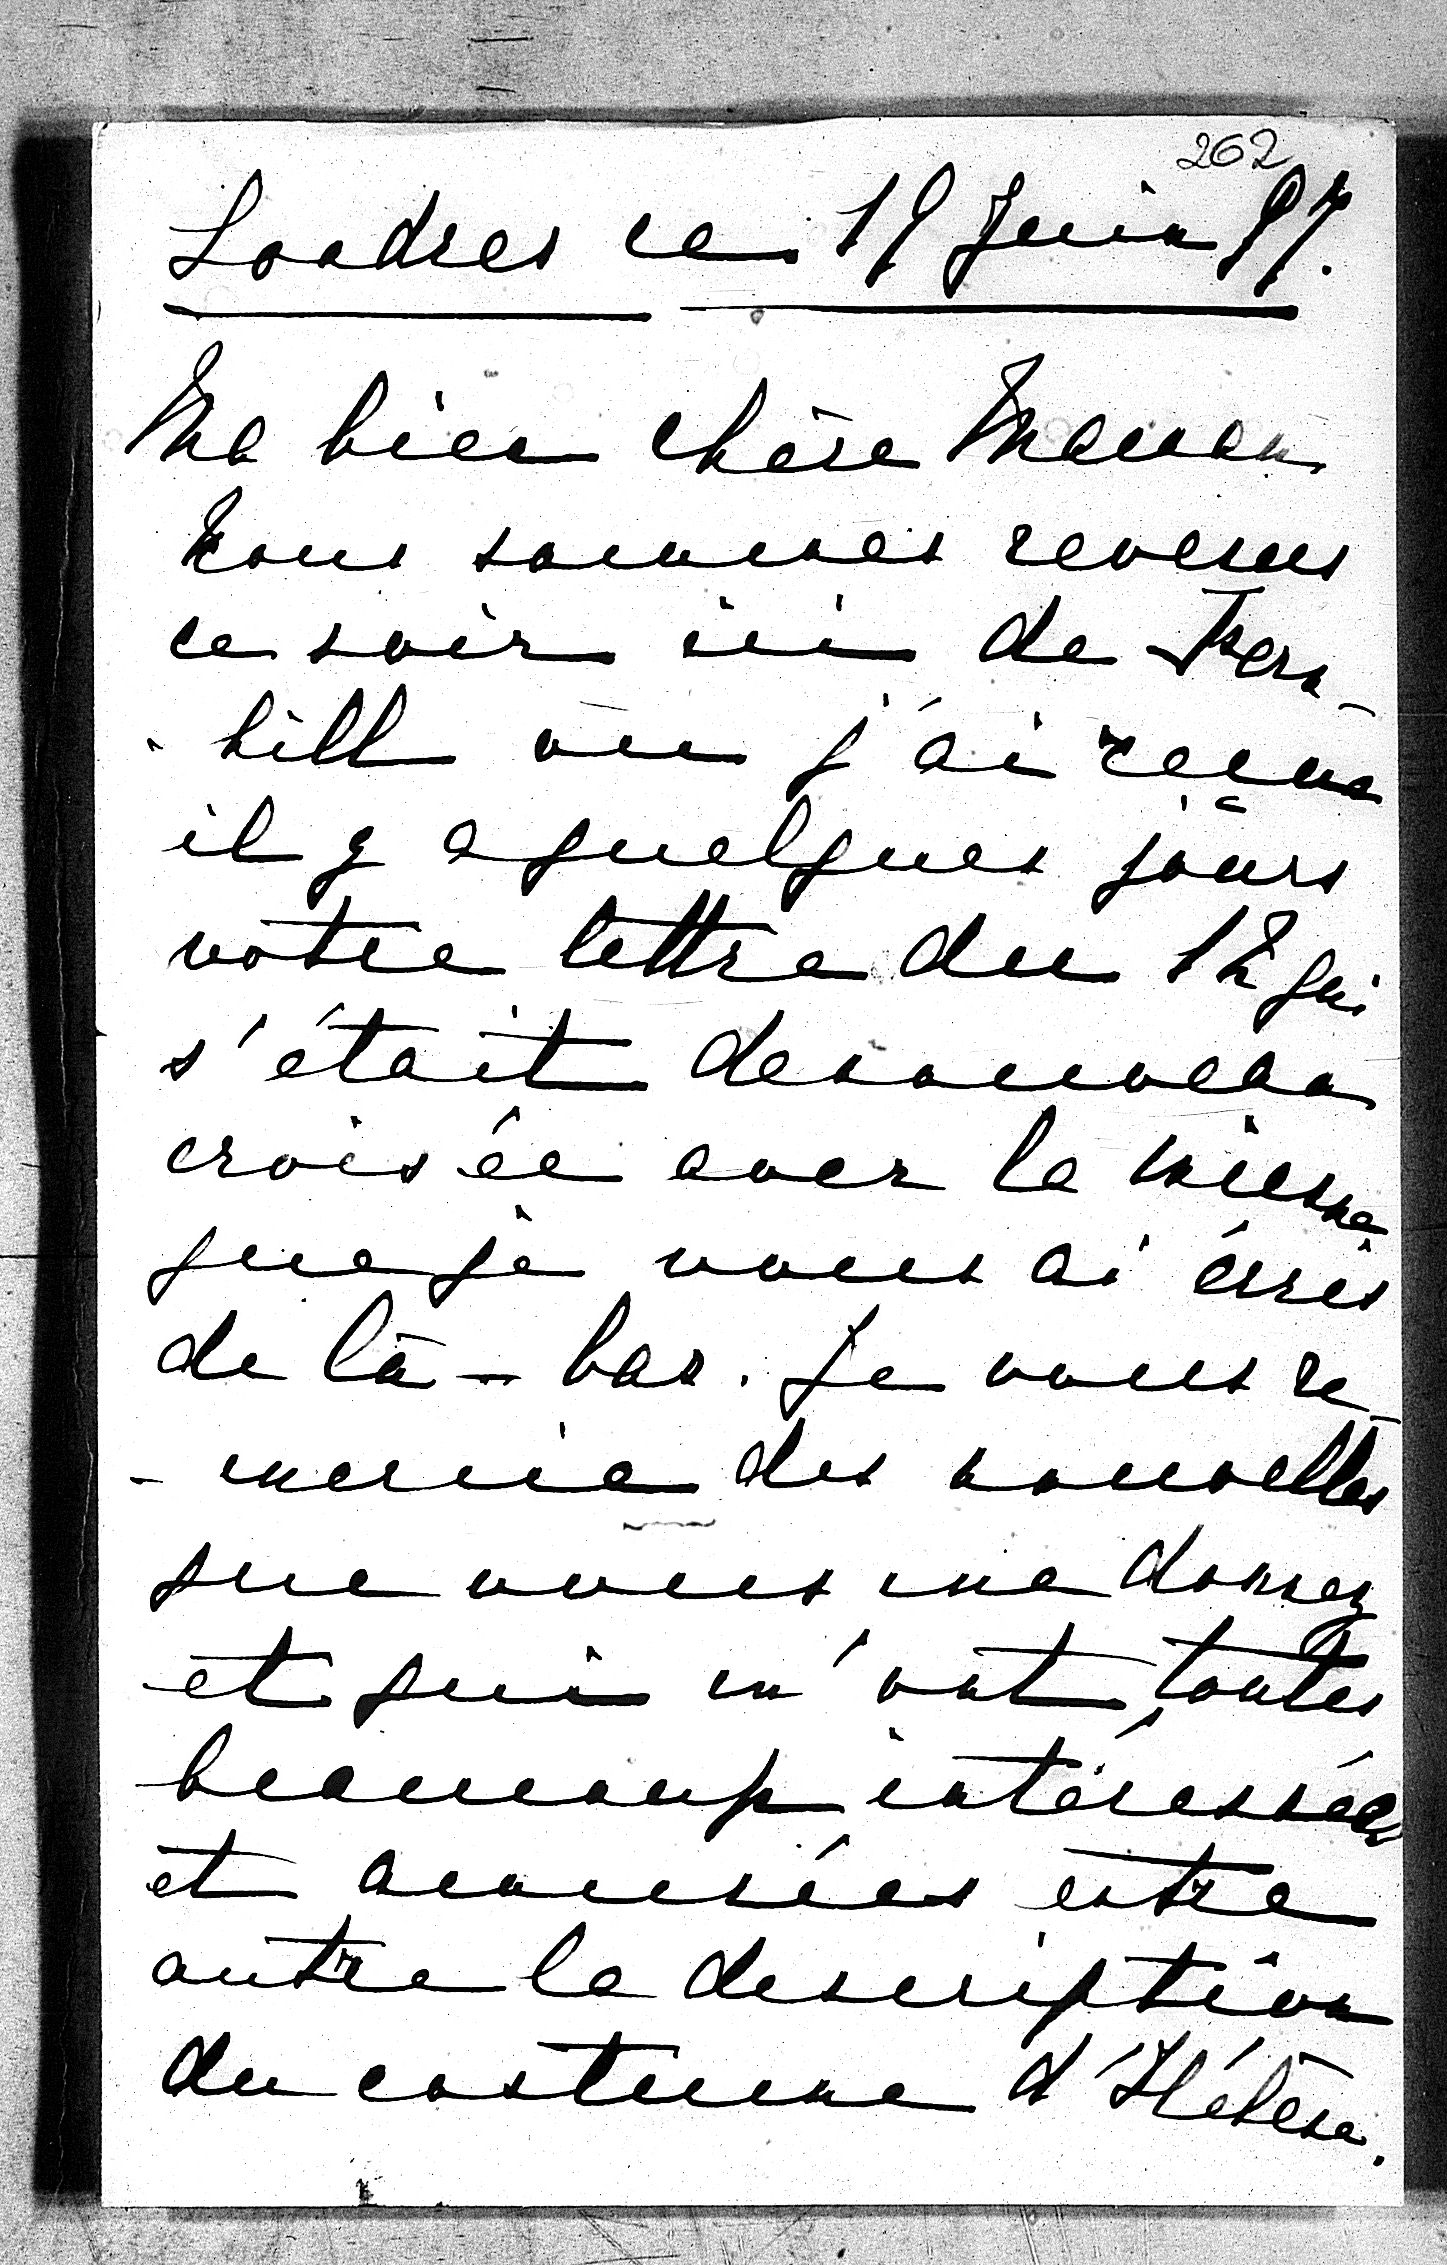 262
Londres ce 19 Juin 97.
Ma bien chère Maman
Nous sommes revenus
ce soir ici de Fern-
-hill où j'ai reçue
il y a quelques jours
votre lettre du 12 qui
s'était denouveau
croisée avec la mienne
que je vous ai écris
de là-bas. Je vous re-
-mercie des nouvelles
que vous me donnez
et qui m'ont toutes
beaucoup intéressées
et amusées entre
autre la description
du costume d'Hélène.